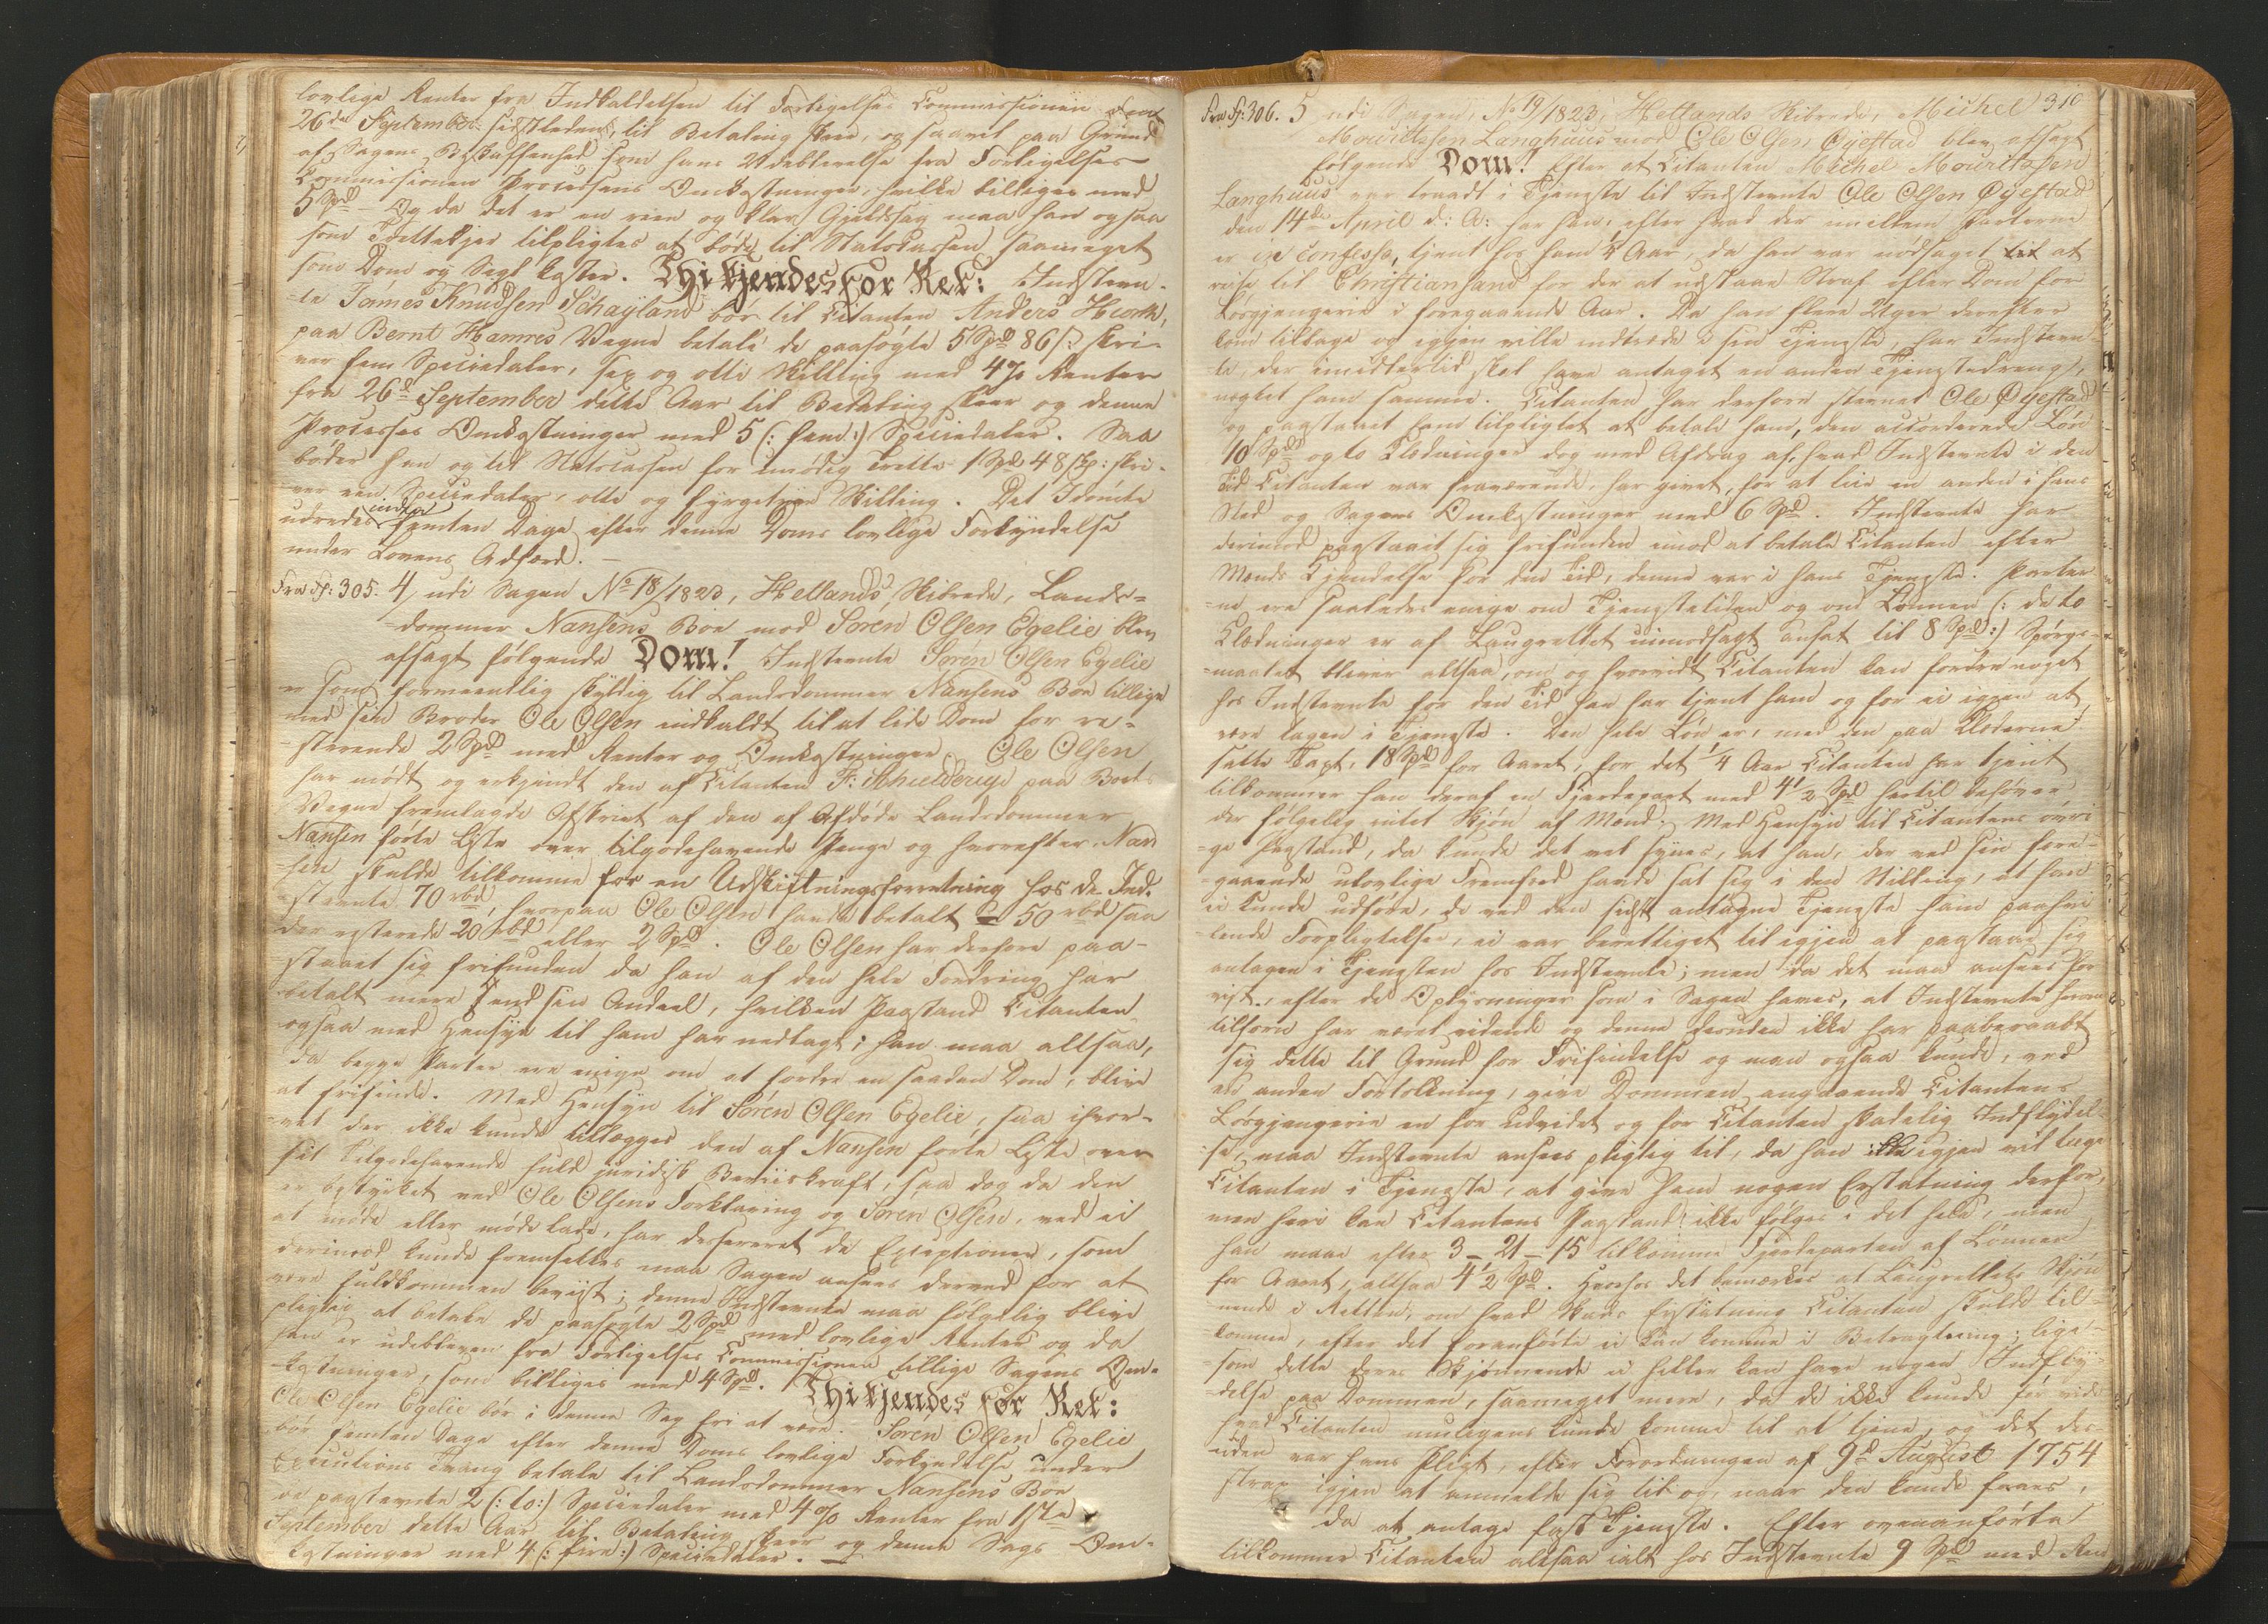 lovlige Renter fra Indkaldelsen til Forligelses Commissionen den
26de September sidstleden, til Betaling skeer, og saavel paa Grund
af Sagens Beskaffenhed som hans Udeblivelse fra Forligelses
Commissionen Processens Omkostninger, hvilke billiges med
5 Spd – Og da det er en reen og klar Gjeldssag maa han ogsaa
som Trettekjer tilpligtes at bøde til Statskassen saameget
som Dom og Segl koster. Thi kjendes for Ret: Indstevn-
te Tämes Knudsen Schayland bør til Citanten Anders Hiorth,
paa Bernt Hamres Vegne betale de paasøgte 5 Spd 86 s: skri-
ver fem Speciedaler, sex og otti Skilling med 4 % Renter
fra 26d September dette Aar til Betaling skeer og denne
Processes Omkostninger med 5 (: fem :) Speciedaler. Saa
bøder han og til Statscassen for unødig Trette 1 Spd 48 sk: skri-
ver een Speciedaler, otte og fyrgetyve Skilling. Det Idømte
udredes inden femten Dage efter denne Doms lovlige Forkyndelse
under Lovens Adfærd. –
Fra Fp: 305. 4, udi Sagen No 18/1823, Hetlands Skibrede, Lands-
dommer Nansens Boe mod Søren Olsen Egelie blev
afsagt følgende Dom! Indstevnte Søren Olsen Egelie
er som formeentlig skyldig til Landsdommer Nansens Boe tillige
med sin Broder Ole Olsen indkaldt til at lide Dom for re-
sterende 2 Spd med Renter og Omkostninger. Ole Olsen
har mødt og erkjendt den af Citanten F: Schielderup paa Boets
Vegne fremlagde Afskrivt af den af Afdøde Landsdommer
Nansen førte Liste over tilgodehavende Penge og hvorefter Nan
sen skulde tilkomme for en Udskiftningsforretning hos de Ind-
stevnte 70 rbd, hvorpaa Ole Olsen havde betalt 50 rbd saa
der resterede 20 rbd eller 2 Spd. Ole Olsen har derfore paa-
staaet sig frifunden da han af den hele Fordring har
betalt mere end sin Andeel, hvilken Paastand Citanten
ogsaa med Hensyn til ham har vedtaget; han maa altsaa,
da begge Parter ere enige om at fordre en saadan Dom, blive
at frifinde. Med Hensyn til Søren Olsen Egelie, saa ihvor-
vel der ikke kunde tillægges den af Nansen førte Liste over
sit Tilgodehavende fuld juridisk Beviiskraft, saa dog da den
er bestyrket ved Ole Olsens Forklaring og Søren Olsen, ved ei
at møde eller møde lade, har desereret de Exceptioner, som
derimod kunde fremsættes maa Sagen ansees derved for at
være fuldkommen beviist; denne Indstevnte maa følgelig blive
pligtig at betale de paasøgte 2 Spd med lovlige Renter og da
han er udebleven fra Forligelses Commissionen tillige Sagens Om-
kostninger, som billiges med 4 Spd. Thi kjendes for Ret:
Ole Olsen Egelie bør i denne Sag fri at være. Søren Olsen Egelie
bør femten Dage efter denne Doms lovlige Forkyndelse under
Executions Tvang betale til Landsdommer Nansens Boe
de paastevnte 2 (: to :) Speciedaler med 4 % Renter fra 17de
September dette Aar til Betaling skeer og denne Sags Om-
kostninger med 4 (: fire :) Speciedaler. –
310
Fra Fp: 306. 5 udi Sagen, No 19/1823, Hetlands Skibrede, Michel
Mouritssen Langhuus mod Ole Olsen Øyestad blev afsagt
følgende Dom! Efter at Citanten Michel Mouritssen
Langhuus var traadt i Tjeneste til Indstevnte Ole Olsen Øyestad
den 14de April d: A: har han, efter hvad der mellem Parterne
er in confesso, tjent hos ham ¼ Aar, da han var nødsaget til at
reise til Christiansand for der at udstaae Straf efter Dom for
Løsgjængerie i foregaaende Aar. Da han flere Uger derefter
kom tilbage og igjen ville indtræde i sin Tjeneste, har Indstevn-
te, der imidlertid skal have antaget en anden Tjenestedreng,
negtet ham samme. Citanten har derfore stevnet Ole Øyestad
og paastaaet ham tilpligtet at betale ham, den accorderede Løn
10 Spd og to Klædninger dog med Afdrag af, hvad Indstevnte i den
Tid Citanten var fraværende, har givet, for at leie en anden i hans
Sted og Sagens Omkostninger med 6 Spd. Indstevnte har
derimod paastaaet sig frifunden imod at betale Citanten efter
Mænds Kjendelse for den Tid, denne var i hans Tjeneste. Parter-
ne ere saaledes enige om Tjenestetiden og om Lønnen (: de to
Klædninger er af Laugrettet uimodsagt ansat til 8 Spd :) Spørgs-
maalet bliver altsaa, om og hvorvidt Citanten kan fordre noget
hos Indstevnte for den Tid han har tjent ham og for ei igjen at
være tagen i Tjeneste. Den hele Løn er, med den paa Klæderne
satte Taxt, 18 Spd for Aaret, for det ¼ Aar Citanten har tjent
tilkommer han deraf en Fjerdepart med 4½ Spd hertil behøves
der følgelig intet Skjøn af Mænd; Med Hensyn til Citantens øvri-
ge Paastand, da kunde det vel synes, at han, der ved sin fore-
gaaende ulovlige Fremfærd havde sat sig i den Stilling, at han
ei kunde udføre, de ved den sidst antagne Tjeneste ham paahvi-
lende Forpligtelser, ei var berettiget til igjen at paastaae sig
antagen i Tjenesten hos Indstevnte; men da det maa ansees for
vist, efter de Oplysninger som i Sagen haves, at Indstevnte herom
tilforn har været vidende og denne desuden ikke har paaberaabt
sig dette til Grund for Frifindelse og man ogsaa kunde, ved
en anden Fortolkning, give Dommen angaaende Citantens
Løsgjængerie en for udvidet og for Citanten skadelig Indflydel-
se, maa Indstevnte ansees pligtig til, da han ikke igjen vil tage
Citanten i Tjeneste, at give ham nogen Erstatning derfor,
men heri kan Citantens Paastand ikke følges i det hele, men
han maae efter 3 – 21 – 15 tilkomme Fjerdeparten af Lønnen
for Aaret, altsaa 4½ Spd. Hvorhos det bemærkes at Laugrettets Skjøn-
nende i Retten, om hvad Skades Erstatning Citanten skulde til-
komme, efter det foranførte ei kan komme i Betragtning; lige-
som dette deres Skjønnende ei heller kan have nogen Indfly-
delse paa Dommen, saameget mere, da de ikke kunde før vide
hvad Citanten muligens kunde komme til at tjene, og det des-
uden var hans Pligt, efter Forordningen af 9d August 1754
strax igjen at anmelde sig til og, naar den kunde faaes,
da at antage fast Tjeneste. Efter ovenanførte
tilkommer Citanten altsaa ialt hos Indstevnte 9 Spd med Ren